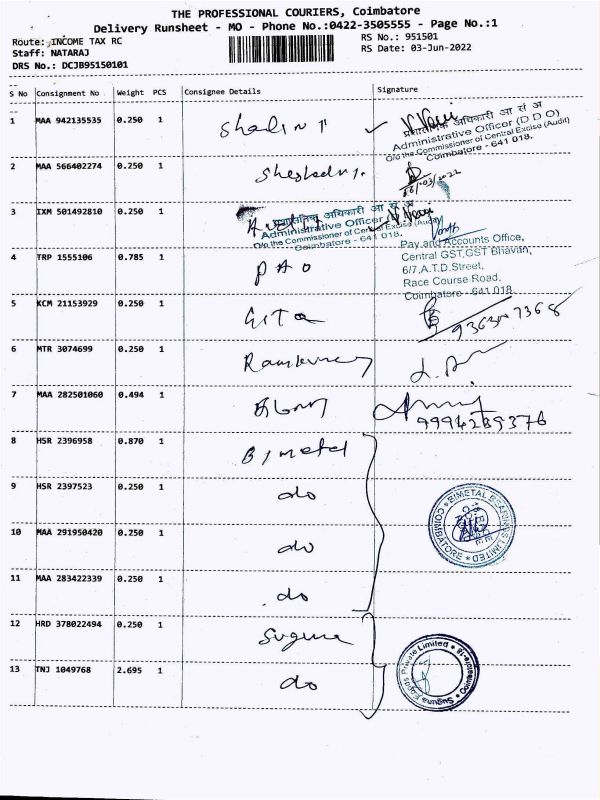 THE PROFESSIONAL COURIERS, Coimbatore
Delivery Runsheet - MO - Phone No.:0422-3505555 - Page No.:1
Route: INCOME TAX RC
RS No.: 951501
Staff: NATARAJ
RS Date: 03-Jun-2022
DRS No.: DCJB95150101
S No Consignment No Weight PCS Consignee Details Signature
1 MAA 942135535 0.250 1
प्रशासनिक अधिकारी आ स अ
Administrative Officer (D D O)
O/o the Commissioner of Central Excise (Audit)
Coimbatore - 641 018.
2 MAA 566402274 0.250 1
3 IXM 501492810 0.250 1
प्रशासनिक अधिकारी आ स अ
Administrative Officer
O/o the Commissioner of Central Excise (Audit)
Coimbatore - 641 018.
4 TRP 1555106 0.785 1 PAO
Pay and Accounts Office,
Central GST, GST Bhavan,
6/7, A.T.D. Street,
Race Course Road,
Coimbatore - 641 018
5 KCM 21153929 0.250 1
6 MTR 3074699 0.250 1
7 MAA 282501060 0.494 1
9994289376
8 HSR 2396958 0.870 1 Bimetal
9 HSR 2397523 0.250 1 do
BIMETAL BEARINGS LIMITED
COIMBATORE
10 MAA 291950420 0.250 1 do
11 MAA 283422339 0.250 1 do
12 HRD 378022494 0.250 1 Suguna
13 TNJ 1049768 2.695 1 do
Private Limited
Suguna